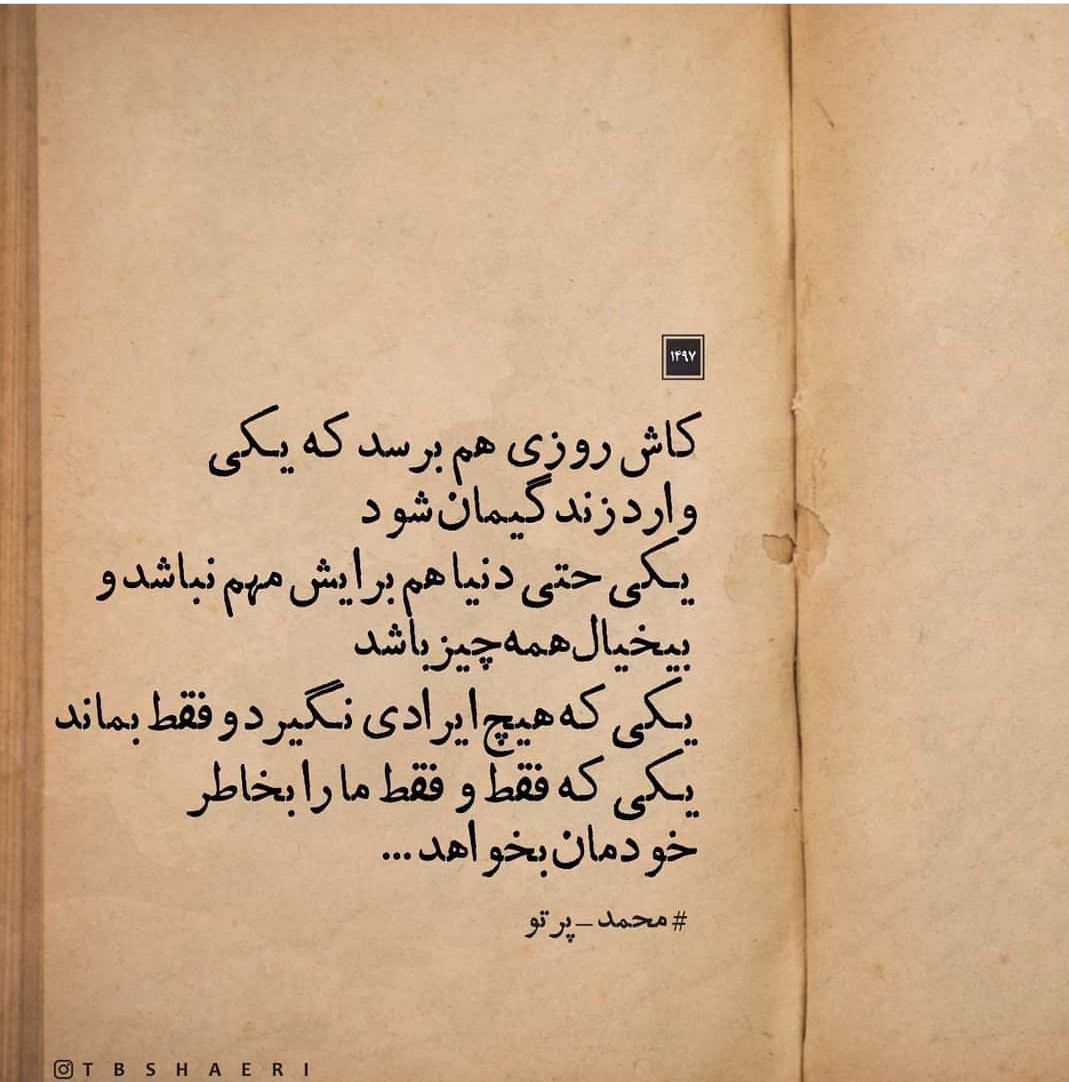 ۱۴۹۷
کاش روزی هم برسد که یکی
وارد زندگیمان شود
یکی حتی دنیا هم برایش مهم نباشد و
بیخیال همه چیز باشد
یکی که هیچ ایرادی نگیرد و فقط بماند
یکی که فقط و فقط ما را بخاطر
خودمان بخواهد...
#محمد_پرتو
TBSHAERI